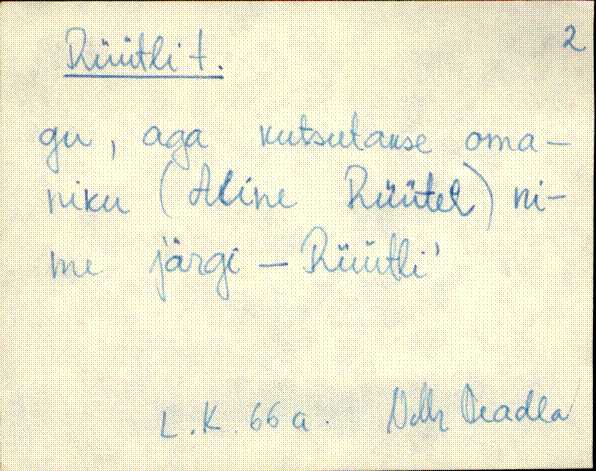 2
Rüütli t.
gu, aga kutsutakse oma-
niku (Aline Rüütel) ni-
me järgi - Rüütli'
L.K. 66 a.